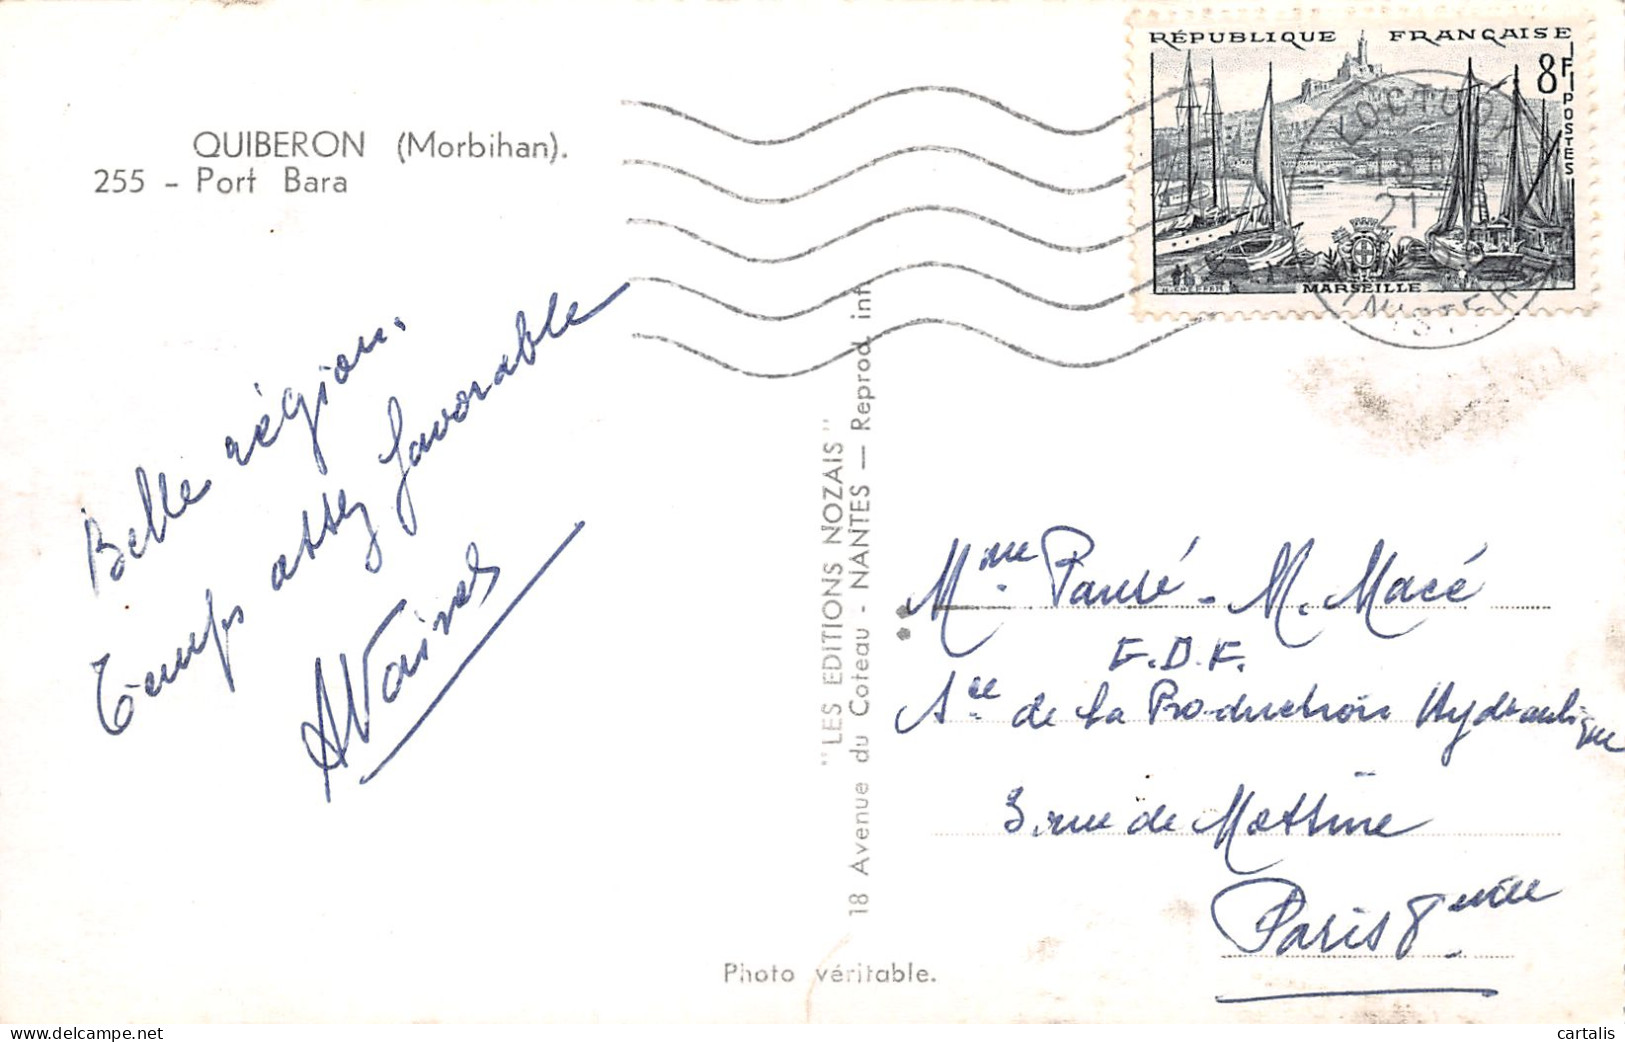 QUIBERON (Morbihan).
255 - Port Bara
RÉPUBLIQUE FRANÇAISE
8F
POSTES
MARSEILLE
LOCTUDY
13 H
21
FINISTERE
Belle région.
Temps assez favorable
"LES EDITIONS NOZAIS"
18 Avenue du Coteau - NANTES — Reprod. int.
Mme Pausé - M. Macé
E.D.F.
Sce de la Production Hydraulique
3, rue de Messine
Paris 8ème
Photo véritable.
cartalis